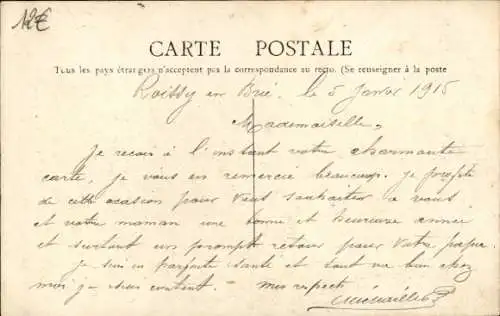 12€
CARTE POSTALE
Tous les pays étrangers n'acceptent pas la correspondance au recto. (Se renseigner à la poste
Roissy en Brie. le 5 Janvr 1915
Mademoiselle,
Je recois à l'instant votre charmante
carte, je vous en remercie beaucoup. je profite
de cette ocasion pour vous souhaiter a vous
et votre maman une bonne et heureuse année
et surtout un prompt retour pour votre papa.
je suis en parfaite santé et tout va bien chez
moi je suis content. mes respects